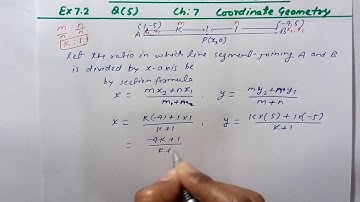 Ex 7.2 Q(5) Ch: 7 Coordinate Geometry
m/n m/n K:1
(1,-5) K 1 (-4,5)
A P(x,0) B
Let the ratio in which line segment joining A and B
is divided by x-axis be
by section formula
x = mx2+nx1/m1+m2 , y = my2+ny1/m+n
x = K(-4)+1x1/K+1 , y = Kx(5)+1x(-5)/K+1
= -4K+1/K+